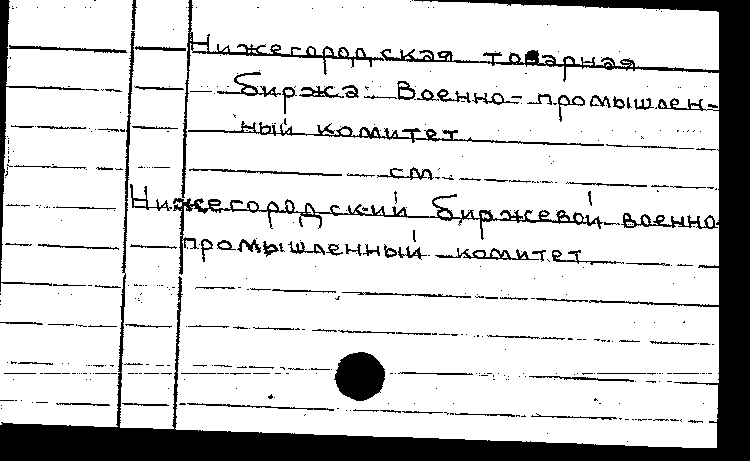 Нижегородская товарная
биржа. Военно-промышлен-
ный комитет.
см.
Нижегородский биржевой военно-
промышленный комитет.